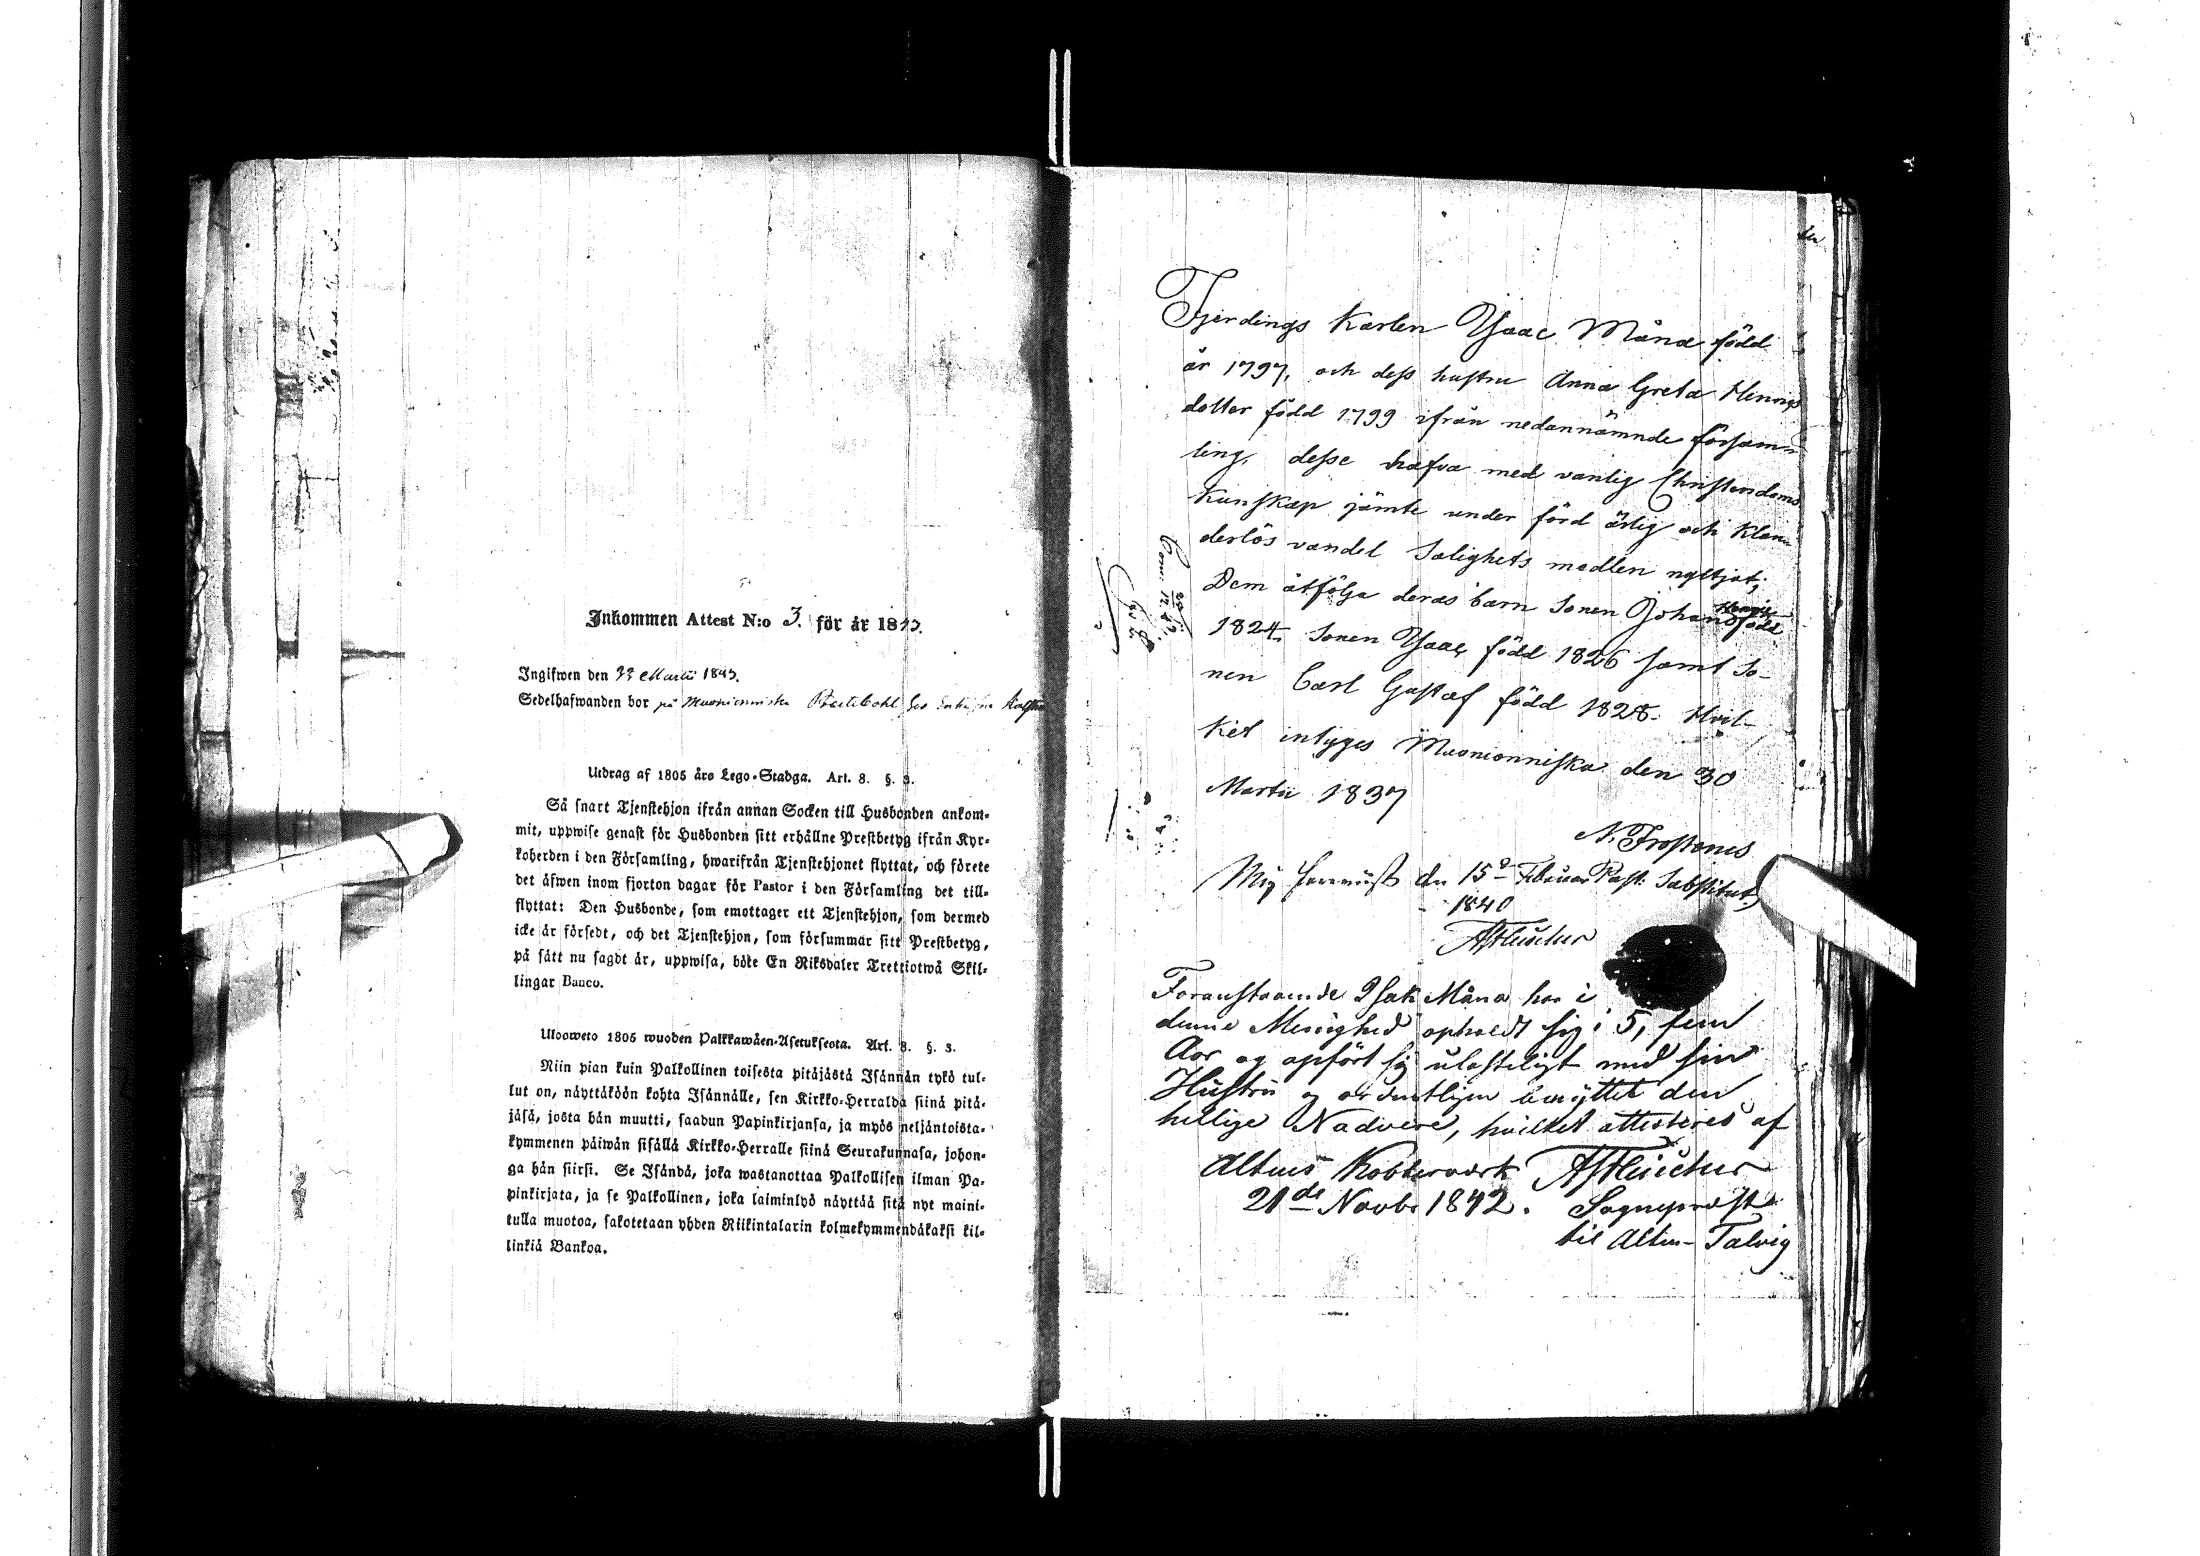 Inkommen Attest N:o 3. för år 1843.
Ingifwen den 23 Martii 1843.
Sedelhafwanden bor på Muonionniska
Utdrag af 1805 års Lego-Stadga. Art. 8. §. 3.
Så snart Tjenstehjon ifrån annan Socken till Husbonden ankom-
mit, uppwise genast för Husbonden sitt erhållne Prestbetyg ifrån Kyr-
koherden i den Församling, hwarifrån Tjenstehjonet flyttat, och förete
det äfwen inom fjorton dagar för Pastor i den Församling det till-
flyttat: Den Husbonde, som emottager ett Tjenstehjon, som dermed
icke är försedt, och det Tjenstehjon, som försummar sitt Prestbetyg,
på sätt nu sagdt är, uppwisa, böte En Riksdaler Trettiotwå Skil-
lingar Banco.
Ulosweto 1805 wuoden Palkkawäen-Asetuksesta. Art. 8. §. 3.
Niin pian kuin Palkollinen toisesta pitäjästä Isännän tykö tul-
lut on, näyttäköön kohta Isännälle, sen Kirkko-Herralda siinä pitä-
jäsä, josta hän muutti, saadun Papinkirjansa, ja myös neljäntoista-
kymmenen päiwän sisällä Kirkko-Herralle siinä Seurakunnasa, johon-
ga hän siirsi. Se Isändä, joka wastanottaa Palkollisen ilman Pa-
pinkirjata, ja se Palkollinen, joka laiminlyö näyttää sitä nyt maini-
tulla muotoa, sakotetaan yhden Riikintalarin kolmekymmendäkaksi kil-
linkiä Bankoa.
Fjerdings Karlen Isaac Måna född
år 1797, och dess hustru Anna Greta Henrics
dotter född 1799 ifrån nedannämnde försam-
ling, desse hafva med vanlig Christendoms
Kunskap jämte under förd ärlig och klan-
derlös vandel Salighets medlen nyttjat;
Dem åtfölja deras barn Sonen Johan Henric född
1824. Sonen Isaac född 1826 samt So-
nen Carl Gustaf född 1828. Hvil-
ket intyges Muonionniska den 30
Martii 1837
N. Frostenus
Past. Substitut.
Mig den 15de Februar
1840
Foranstaaende Isak Måna har i
denne Menighed opholdt sig i 5, fem
Aar og opført sig ulasteligt med sin
Hustru og ordentligen benyttet den
hellige Nadvere, hvilket attesteres af
Altens Kobberværk
21de Novbr 1842. Sogneprest
til Alten-Talvig